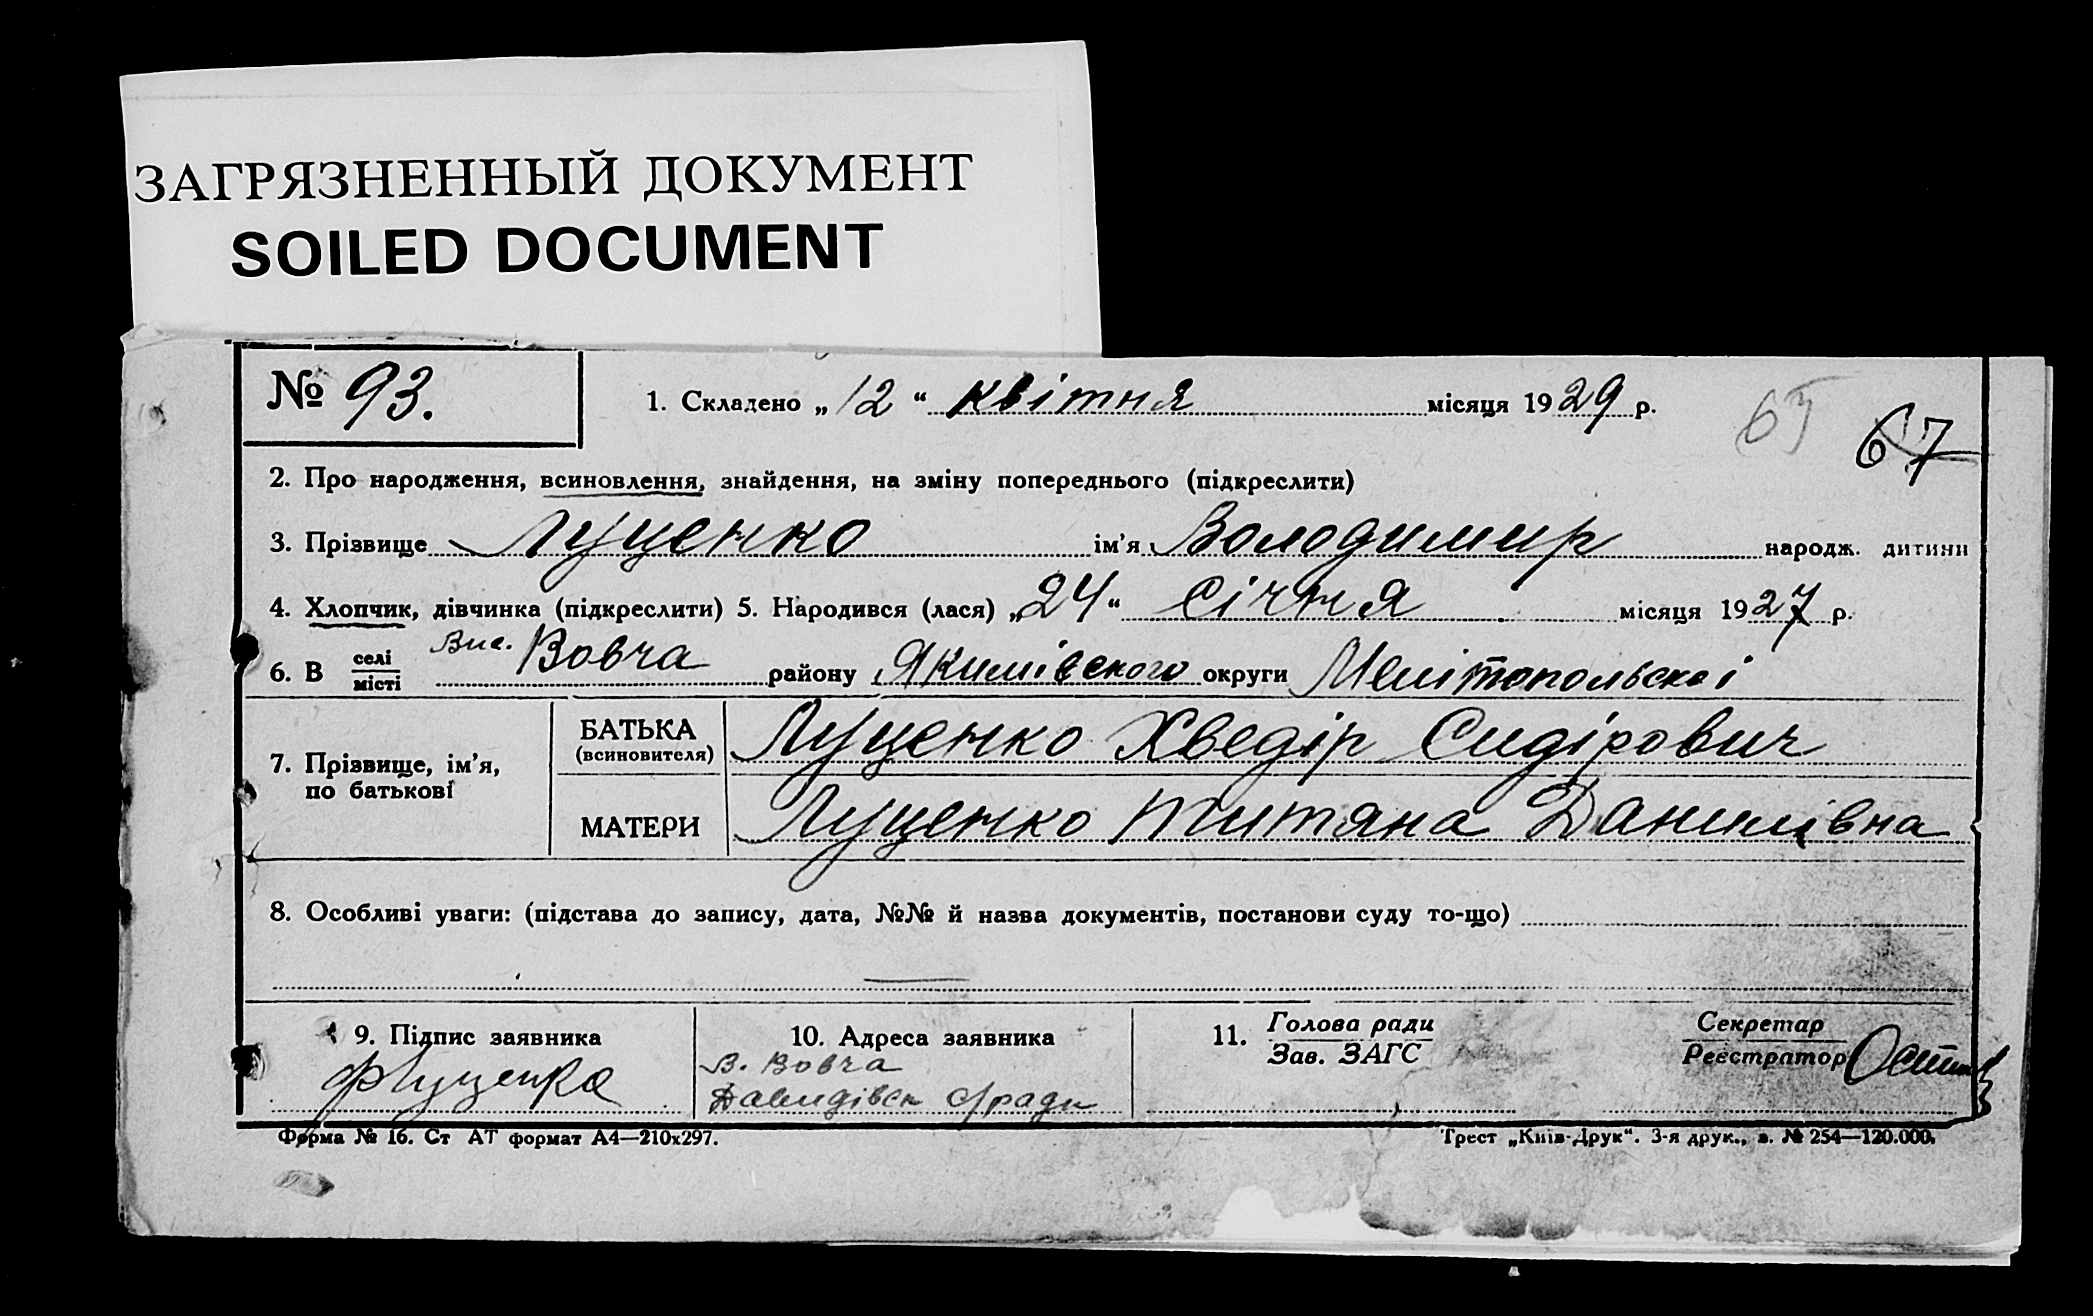 ЗАГРЯЗНЕННЫЙ ДОКУМЕНТ
SOILED DOCUMENT
№ 93.
1. Складено „12“ квітня місяця 1929 р.
65 67
2. Про народження, всиновлення, знайдення, на зміну попереднього (підкреслити)
3. Прізвище Луценко ім’я Володимир народж. дитини
4. Хлопчик, дівчинка (підкреслити) 5. Народився (лася) „24“ січня місяця 1927 р.
6. В селі/місті Вис. Вовча району Якимівского округи Мелітопольскоі
7. Прізвище, ім’я, по батькові
БАТЬКА (всиновителя) Луценко Хведір Сидірович
МАТЕРИ Луценко Титяна Данилівна
8. Особливі уваги: (підстава до запису, дата, №№ й назва документів, постанови суду то-що)
9. Підпис заявника
ФЛуценко
10. Адреса заявника
В. Вовча
Давидівск с/ради
11. Голова ради
Зав. ЗАГС
Секретар
Реєстратор
Форма № 16. Ст АТ формат А4—210х297.
Трест „Київ-Друк“. 3-я друк., з. № 254—120.000.